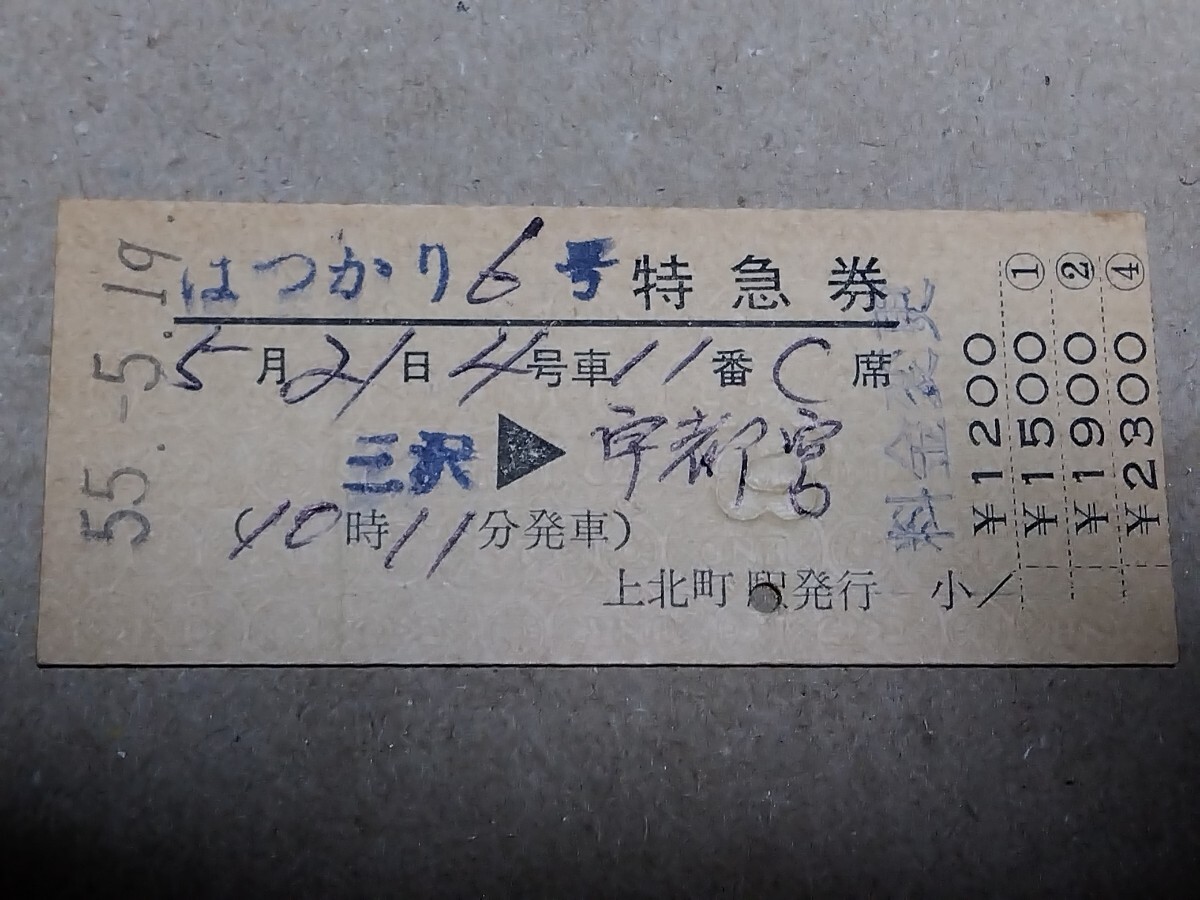 55.-5.19.
はつかり6号特急券
5月21日4号車11番C席
三沢▶宇都宮
(10時11分発車)
上北町駅発行 小
料金変更
¥1200
¥1500 ①
¥1900 ②
¥2300 ④